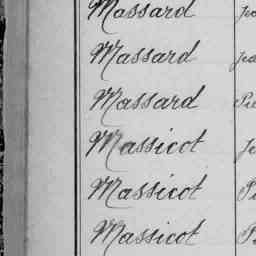 Massard
Massard
Massard
Massicot
Massicot
Massicot